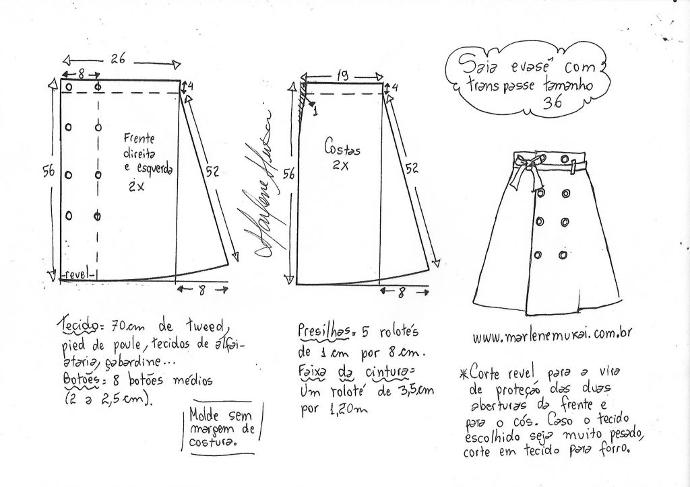 26
8
4
Frente
direita
e esquerda
2x
56
52
revel
8
Marlene Mukai
19
4
1
Costas
2x
56
52
8
Saia evasê com
transpasse tamanho
36
www.marlenemukai.com.br
Tecido= 70cm de tweed,
pied de poule, tecidos de alfai-
ataria, gabardine...
Botões= 8 botões médios
(2 a 2,5cm).
Molde sem
margem de
costura.
Presilhas= 5 rolotés
de 1cm por 8cm.
Faixa da cintura=
Um roloté de 3,5cm
por 1,20m
*Corte revel para a vira
de proteção das duas
aberturas da frente e
para o cós. Caso o tecido
escolhido seja muito pesado,
corte em tecido para forro.